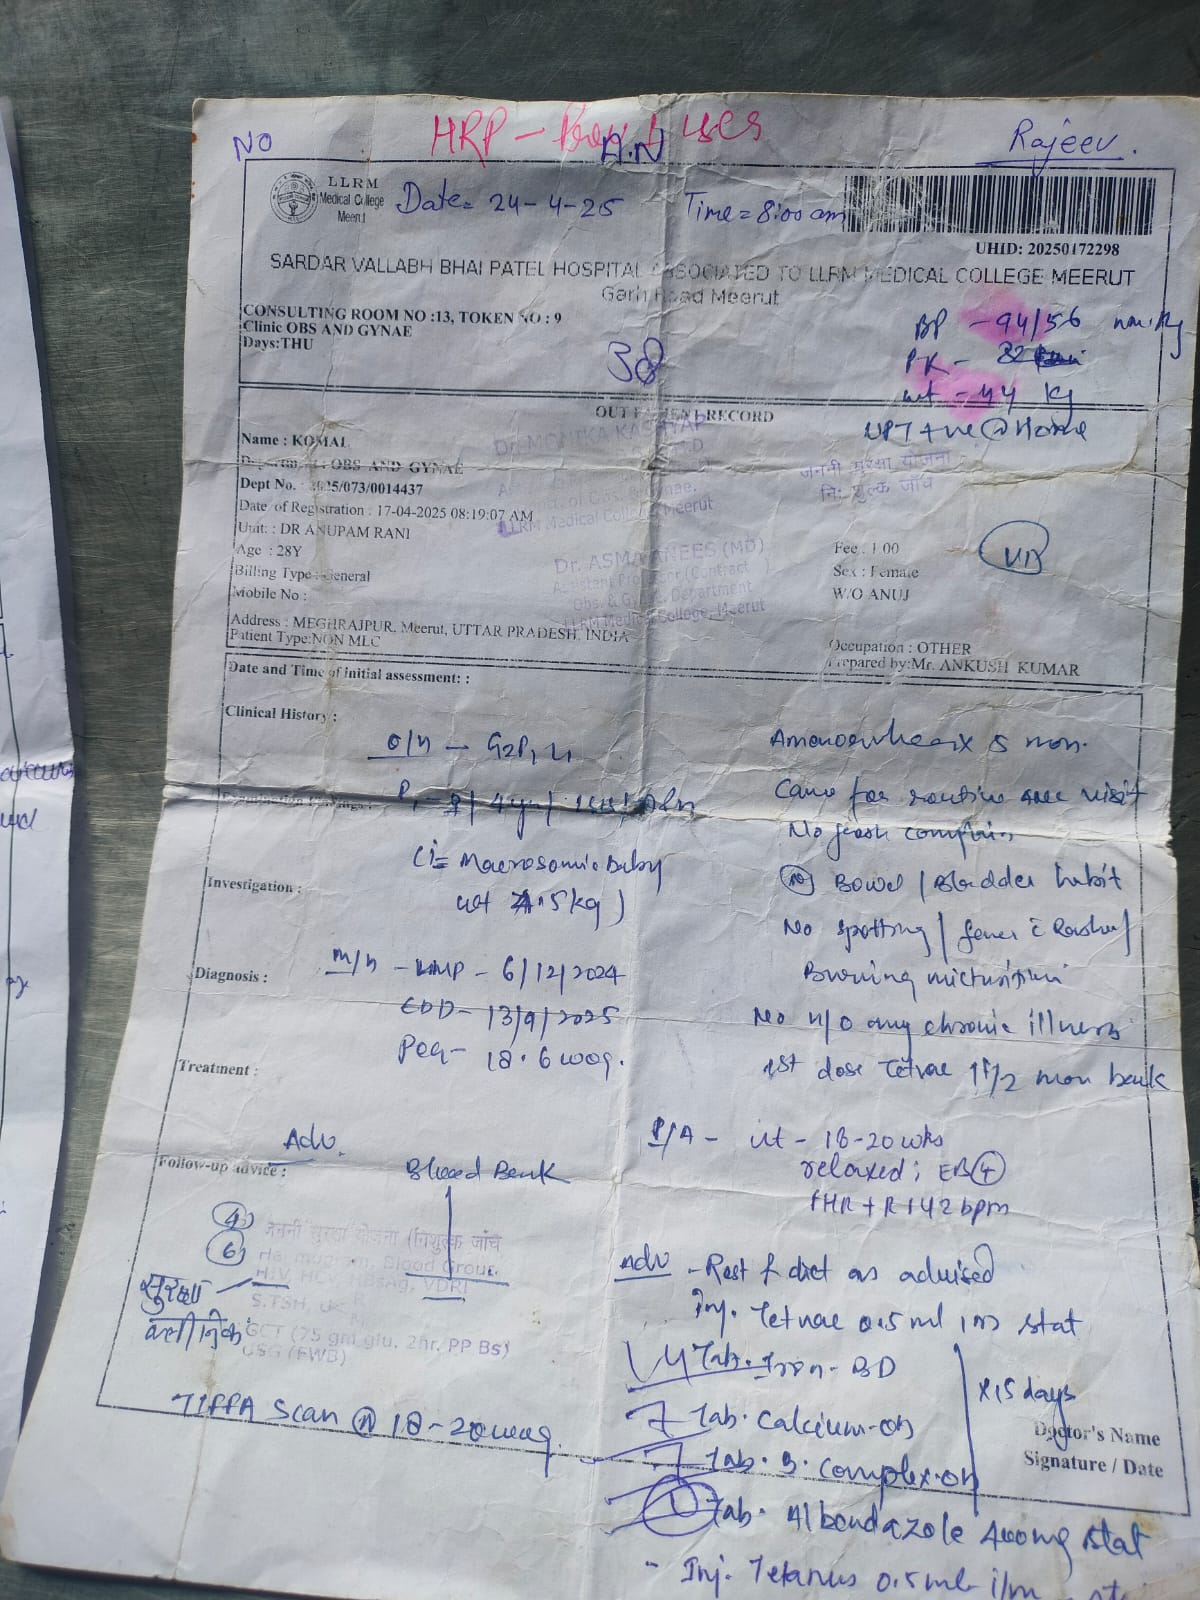 NO
HRP -
A.N
Rajeev.
LLRM
Medical College
Meerut
Date= 24-4-25
Time = 8:00 am
UHID: 20250172298
SARDAR VALLABH BHAI PATEL HOSPITAL ASSOCIATED TO LLRM MEDICAL COLLEGE MEERUT
Garh Road Meerut
CONSULTING ROOM NO :13, TOKEN NO : 9
Clinic OBS AND GYNAE
Days:THU
38
BP - 94/56
PR -
wt - 44 kg
UPT +ve @ Home
OUT PATIENT RECORD
Name : KOMAL
Department : OBS AND GYNAE
Dept No. : 2025/073/0014437
Date of Registration : 17-04-2025 08:19:07 AM
Unit: : DR ANUPAM RANI
Age : 28Y
Billing Type : General
Mobile No :
Address : MEGHRAJPUR, Meerut, UTTAR PRADESH, INDIA
Patient Type:NON MLC
Dr. MONIKA KASHYAP
LLRM Medical College, Meerut
Dr. ASMA ANEES (MD)
Assistant Professor (Contract)
Obs. & Gynae. Department
LLRM Medical College, Meerut
जननी सुरक्षा योजना
निः शुल्क जाँच
Fee : 1.00
Sex : Female
W/O ANUJ
Occupation : OTHER
Prepared by:Mr. ANKUSH KUMAR
Date and Time of initial assessment: :
Clinical History :
O/H - G2P1L1
(c̄ Macrosomic Baby
wt 4.5kg)
Investigation :
Diagnosis :
M/H - LMP - 6/12/2024
EDD - 13/9/2025
POG - 18.6 wog.
Treatment :
Amenorrhea x 5 mon.
Came for routine ANC visit
No fresh complain
(N) Bowel / Bladder habit
No spotting / fever c̄ Rashes/
Burning micturition
No H/O any chronic illness
1st dose Tetvac 1 1/2 mon back
P/A - ut - 18-20 wks
relaxed; EB(+)
FHR + R 142 bpm
Adv.
Follow-up advice :
Blood Bank
4
6
जननी सुरक्षा योजना (निशुल्क जाँच
Haemogram, Blood Group,
HIV, HCV, HBsAg, VDRL
S.TSH,
GCT (75 gm glu, 2hr, PP Bs)
USG (FWB)
सुरक्षा
क्लीनिक
TIFFA Scan @ 18-20 wog.
Adv - Rest & diet as advised
Inj. Tetvac 0.5 ml IM stat
Tab. Iron - BD
Tab. Calcium - OD
Tab. B. complex - OD
x 15 days
Tab. Albendazole 400mg stat
- Inj. Tetanus 0.5 ml i/m
Doctor's Name
Signature / Date